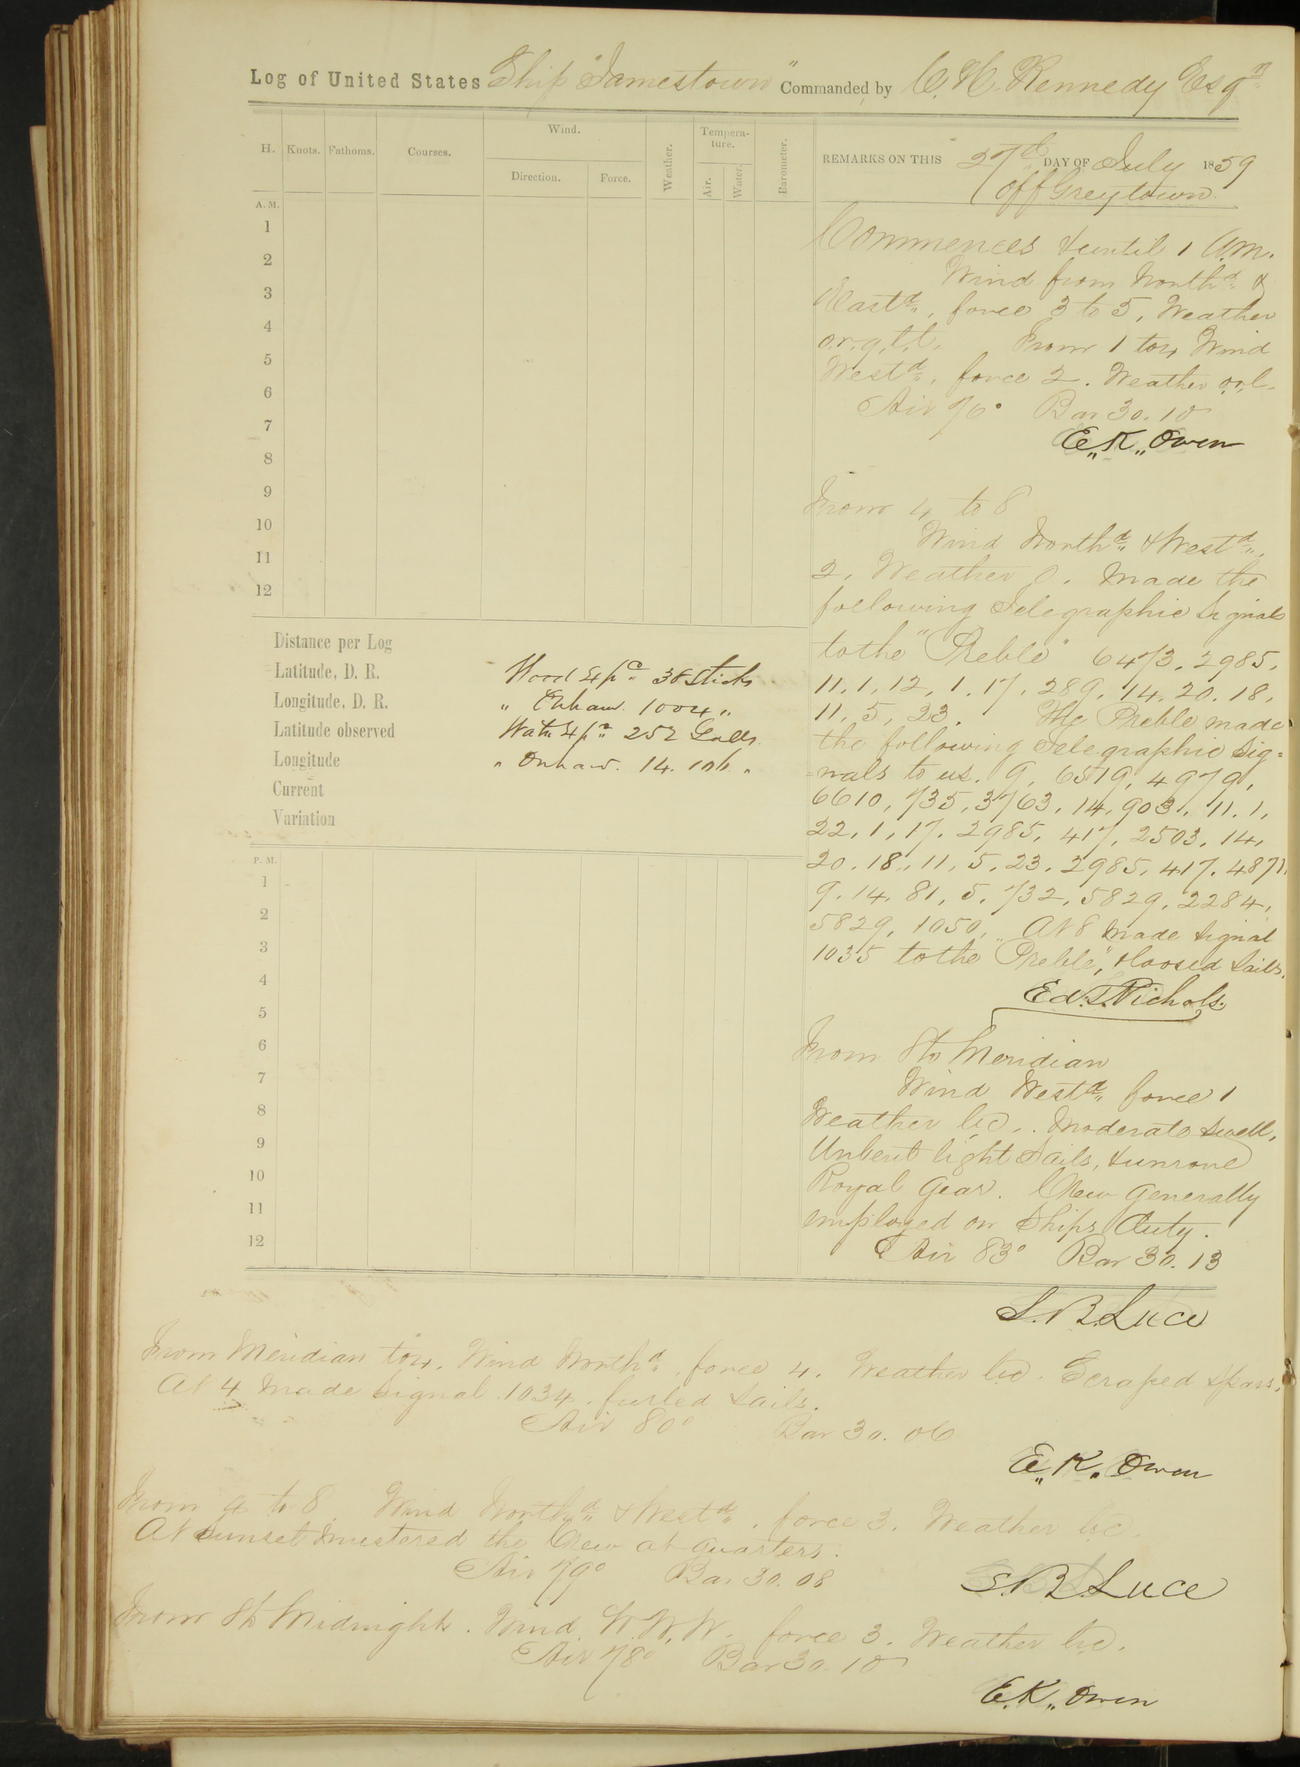 Log of United States Ship "Jamestown" Commanded by C. H. Kennedy Esqr
H. Knots. Fathoms. Courses. Wind. Direction. Force. Weather. Tempera-ture. Air. Water. Barometer.
REMARKS ON THIS 27th DAY OF July 1859
off Greytown.
A. M.
1
2
3
4
5
6
7
8
9
10
11
12
Commences & until 1 A.m.
Wind from Northd &
Eastd, force 3 to 5, Weather
o.r.q.t.l. From 1 to 4 Wind
Westd, force 2. Weather o.r.l.
Air 76° Bar 30.10
E. K. Owen
From 4 to 8
Wind Northd & Westd,
2, Weather o. Made the
following Telegraphic Signals
to the "Preble" 6473. 2985.
11. 1, 12, 1. 17, 289, 14, 20. 18,
11, 5, 23. The Preble made
the following Telegraphic Sig=
=nals to us. 9, 6519, 4979,
6610, 735, 3763, 14, 903, 11. 1,
22, 1, 17. 2985, 417, 2503, 14,
20. 18, 11, 5, 23. 2985, 417. 4871,
9. 14. 81, 5. 732, 5829, 2284,
5829, 1050, At 8 made Signal
1035 to the "Preble", & loosed Sails.
Ed. T. Nichols.
Distance per Log
Latitude, D. R.
Longitude, D. R.
Latitude observed
Longitude
Current
Variation
Wood Exp. 38 Sticks
" Onhand. 1004 "
Water Exp. 252 Galls.
" Onhand. 14.106 "
P. M.
1
2
3
4
5
6
7
8
9
10
11
12
From 8 to Meridian
Wind Westd, force 1
Weather b.c.. Moderate Swell,
Unbent light Sails, & unrove
Royal gear. Crew generally
employed on Ships Duty.
Air 83° Bar 30.13
S. B. Luce
From Meridian to 4. Wind Northd, force 4. Weather b.c. Scraped Spars.
At 4 Made Signal 1034. furled Sails.
Air 80° Bar 30.06
E. K. Owen
From 4 to 8 Wind Northd & Westd, force 3. Weather b.c.
At Sunset mustered the Crew at quarters.
Air 79° Bar 30.08
S. B. Luce
From 8 to Midnight. Wind N.N.W. force 3. Weather b.c.
Air 78° Bar 30.10
E. K. Owen